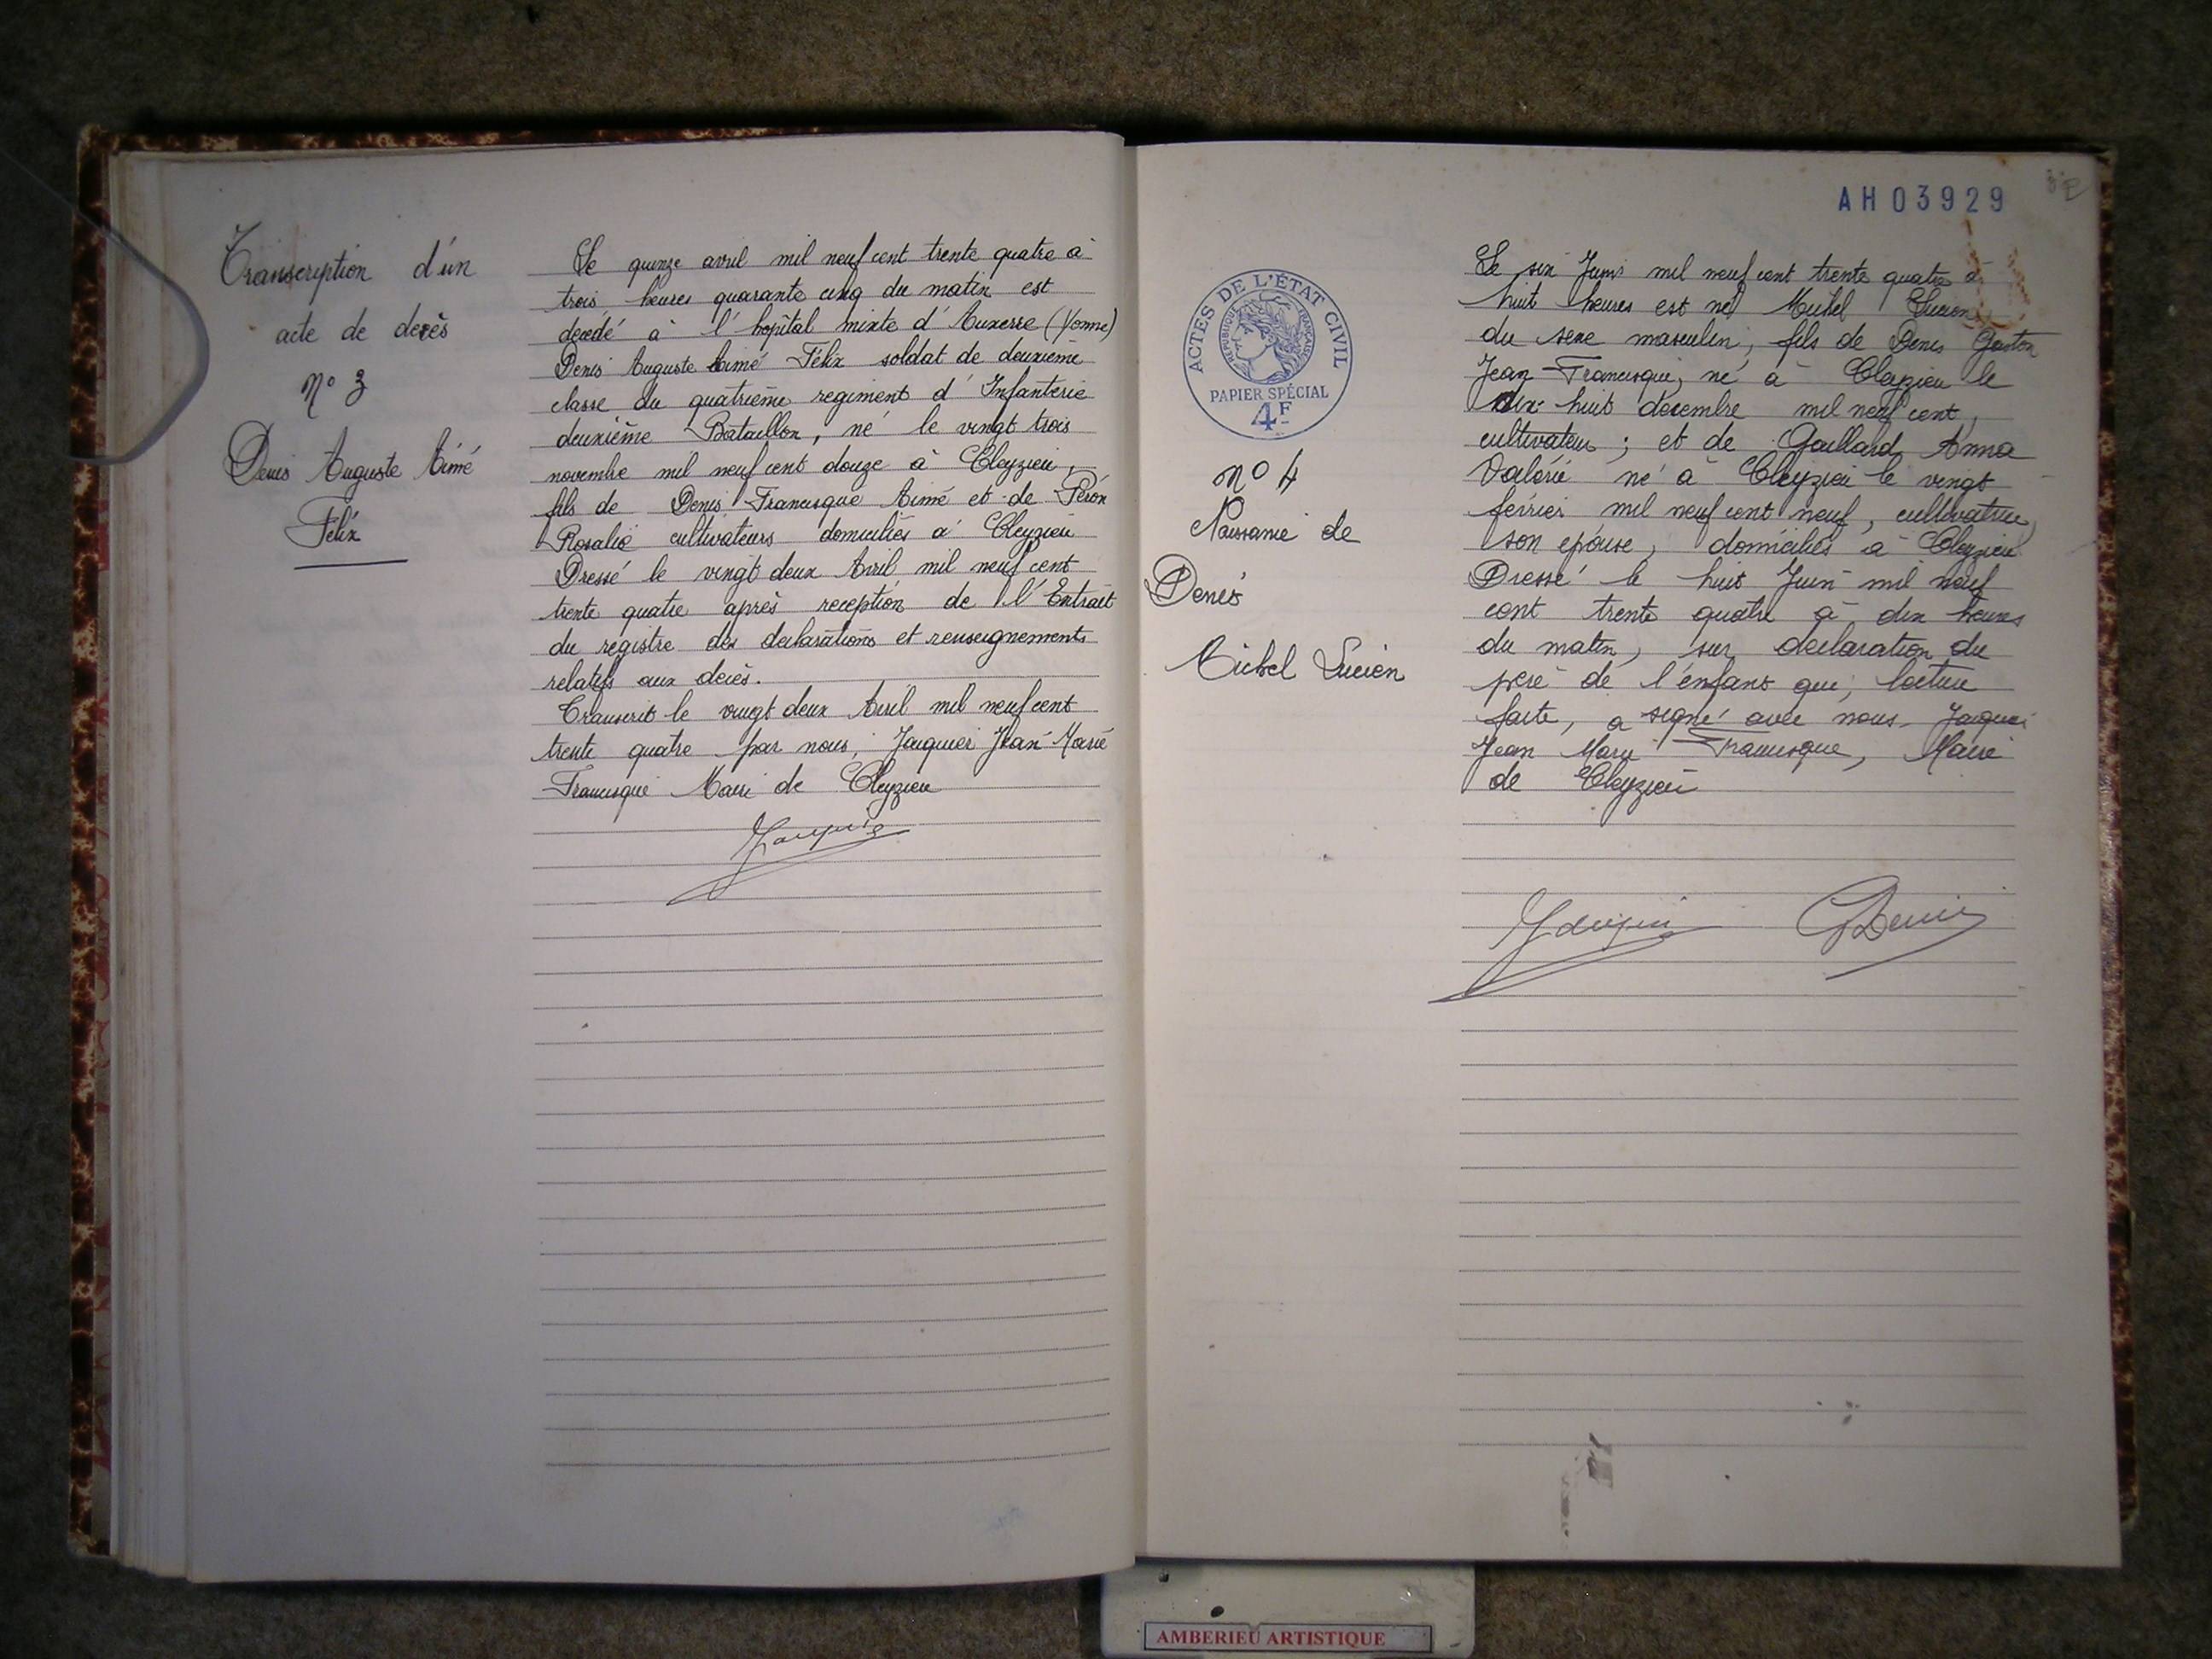 Transcription d'un
acte de decès
No 3
Denis Auguste Aimé
Félix
Le quinze avril mil neuf cent trente quatre à
trois heures quarante cinq du matin est
decedé à l'hopital mixte d'Auxerre (Yonne)
Denis Auguste Aimé Félix soldat de deuxième
classe du quatrième regiment d'Infanterie
deuxième Bataillon, né le vingt trois
novembre mil neuf cent douze à Cleyzieu,
fils de Denis Francisque Aimé et de Péron
Rosalie cultivateurs domiciliés à Cleyzieu
Dressé le vingt deux Avril mil neuf cent
trente quatre après reception de l'Extrait
du registre des declarations et renseignements
relatifs aux décès.
Transcrit le vingt deux Avril mil neuf cent
trente quatre par nous, Jacquier Jean Marie
Francisque Maire de Cleyzieu
Jacquier
AH03929
ACTES DE L'ÉTAT CIVIL
RÉPUBLIQUE FRANÇAISE
PAPIER SPÉCIAL
4F
No 4
Naissance de
Denis
Michel Lucien
Le six Juin mil neuf cent trente quatre à
huit heures est né Michel Lucien
du sexe masculin, fils de Denis Gaston
Jean Francisque, né à Cleyzieu le
dix huit décembre mil neuf cent,
cultivateur ; et de Gaillard Anna
Valérie né à Cleyzieu le vingt
février mil neuf cent neuf, cultivatrice,
son epouse, domiciliés à Cleyzieu
Dressé le huit Juin mil neuf
cent trente quatre à dix heures
du matin, sur declaration du
père de l'enfant qui, lecture
faite, a signé avec nous Jacquier
Jean Marie Francisque, Maire
de Cleyzieu
Jacquier GDenis
AMBERIEU ARTISTIQUE